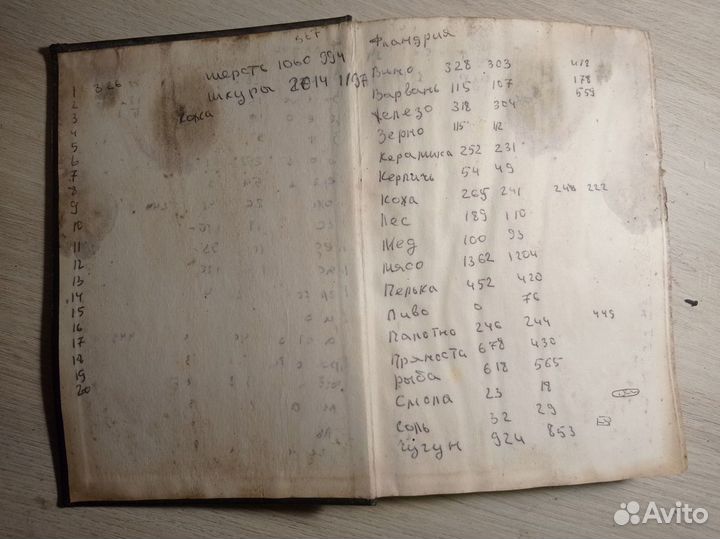 567
шерсть 1060 994
1 326
шкуры 2014 1197
2
3 кожа
4
5
6
7
8
9
10
11
12
13
14
15
16
17
18
19
20
Фландрия
Вино 328 303 418
Варвань 115 107 178
559
железо 318 304
Зерно 115 112
Керамика 252 231
Керпичь 54 49
Кожа 265 241 248 222
Лес 189 110
Мед 100 93
Мясо 1362 1204
Пенька 452 420
Пиво 0 76
Палотно 246 244 449
Пряноста 678 430
рыба 618 565
Смола 23 18
Соль 32 29
Чугун 924 853
Avito